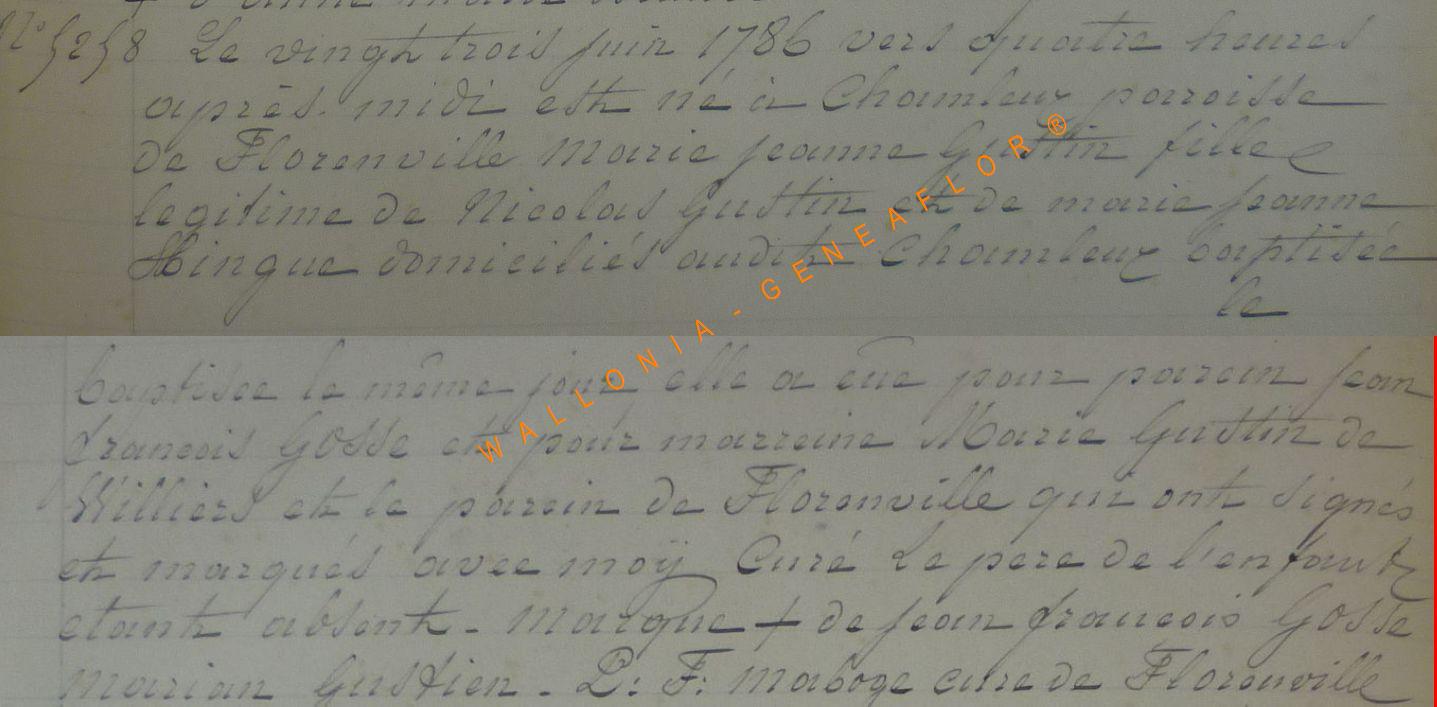 + d'anne marie
N° 5258 Le vingt trois juin 1786 vers quatre heures
après midi est né à Chamleux parroisse
de Florenville Marie jeanne Gustin fille
legitime de Nicolas Gustin et de marie jeanne
Hingue domiciliés audit Chamleux baptisée
le
baptisee le même jour elle a eue pour parein jean
francois Gosse et pour marreine Marie Gustin de
Williers et le parein de Florenville qui ont signés
et marqués avec moÿ Curé Le pere de l'enfant
etant absent - Marque + de jean francois Gosse
Marian Gustien - P: F: Maboge cure de Florenville
WALLONIA - GENEAFLOR ®